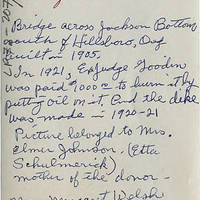 Bridge across Jackson Bottom
south of Hillsboro, Ore
built in 1905.
In 1921, Ex Judge Goodin
was paid 9000 to burn it by
putting oil on it, and the deke
was made in 1920-21
Picture belonged to Mrs.
Elmer Johnson. (Etta
Schulmerick)
mother of the donor-
Welsh